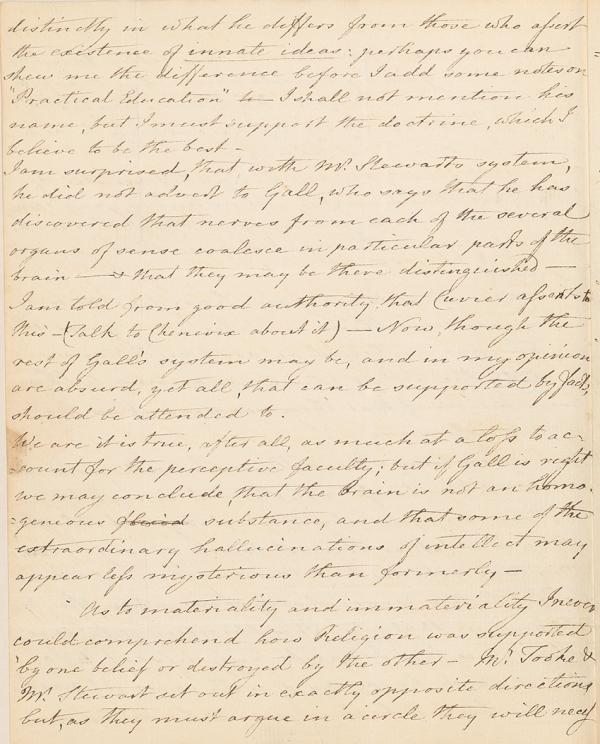 distinctly in what he differs from those who assert
the existence of innate ideas: perhaps you can
shew me the difference before I add some notes on
"Practical Education" to I shall not mention his
name, but I must support the doctrine, which I
believe to be the best -
I am surprised, that with Mr. Stewarts system,
he did not advert to Gall, who says that he has
discovered that nerves from each of the several
organs of sense coalesce in particular parts of the
brain — & that they may be there distinguished —
I am told from good authority that Cuvier assents to
this - (Talk to Chenevix about it) - Now though the
rest of Gall's system may be, and in my opinion
are absurd, yet all, that can be supported by facts,
should be attended to.
We are it is true, after all, as much at a loss to ac-
=count for the perceptive faculty; but if Gall is right
we may conclude, that the brain is not an homo-
=geneous substance, and that some of the
extraordinary hallucinations of intellect may
appear less mysterious than formerly -
As to materiality and immateriality I never
could comprehend how Religion was supported
by one belief or destroyed by the other - Mr. Tooke &
Mr. Stewart set out in exactly opposite directions
but, as they must argue in a circle they will necess